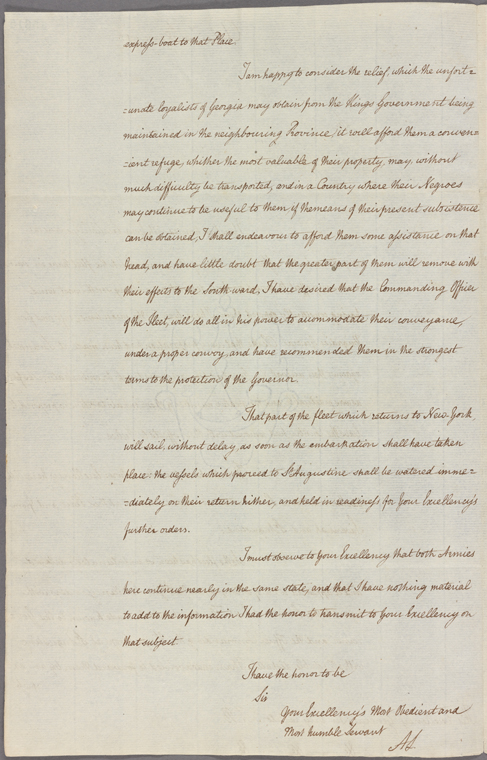 express-boat to that Place.
I am happy to consider the relief, which the unfort=
=unate loyalists of Georgia may obtain from the Kings Government being
maintained in the neighbouring Province, it will afford them a conven=
=ient refuge, whither the most valuable of their property, may, without
much difficulty be transported, and in a Country where their Negroes
may continue to be useful to them if the means of their present subsistence
can be obtained, I shall endeavour to afford them some assistance on that
head, and have little doubt that the greater part of them will remove with
their effects to the Southward, I have desired that the Commanding Officer
of the Fleet, will do all in his power to accommodate their conveyance,
under a proper convoy, and have recommended them in the strongest
terms to the protection of the Governor.
That part of the fleet which returns to New York,
will sail, without delay, as soon as the embarkation shall have taken
place: the vessels which proceed to St. Augustine shall be watered imme=
=diately on their return hither, and held in readiness for Your Excellency's
further orders.
I must observe to Your Excellency that both Armies
here continue nearly in the same state, and that I have nothing material
to add to the information I had the honor to transmit to Your Excellency on
that subject.
I have the honor to be
Sir
Your Excellency's Most Obedient and
Most humble Servant
AL